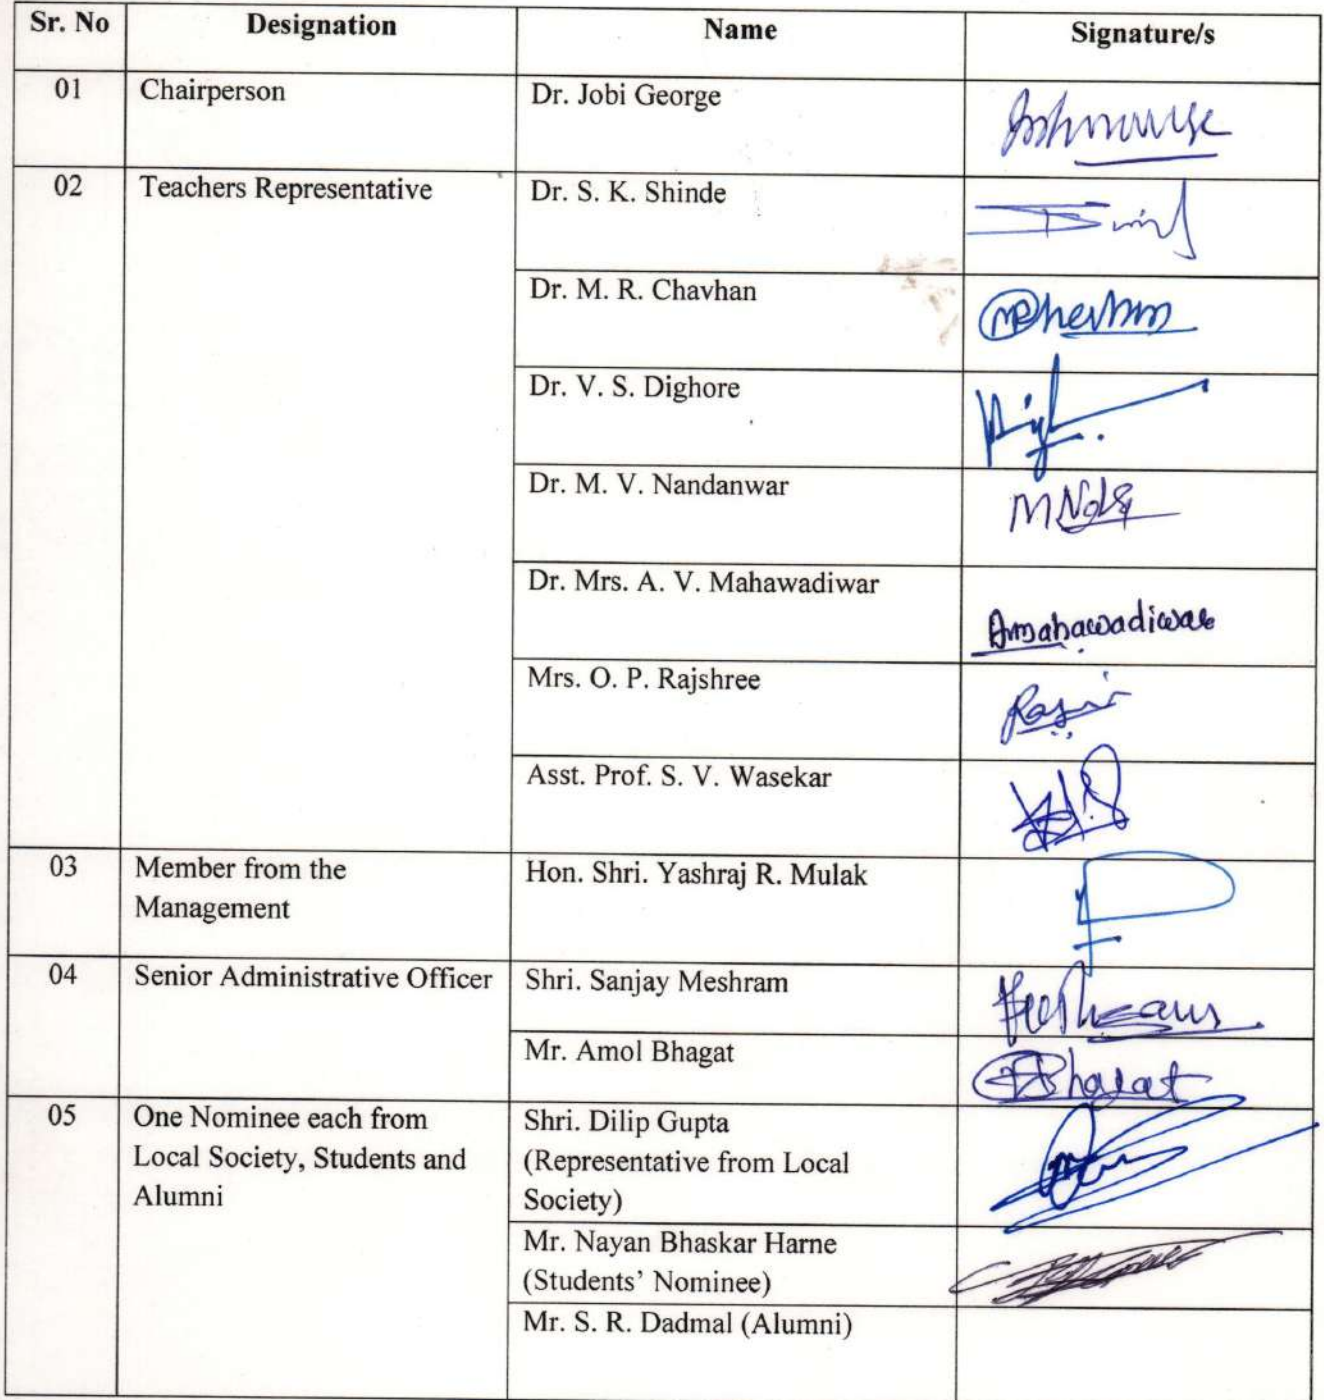 Sr. No Designation Name Signature/s
01 Chairperson Dr. Jobi George
02 Teachers Representative Dr. S. K. Shinde
Dr. M. R. Chavhan
Dr. V. S. Dighore
Dr. M. V. Nandanwar
Dr. Mrs. A. V. Mahawadiwar
Amahawadiwar
Mrs. O. P. Rajshree
Asst. Prof. S. V. Wasekar
03 Member from the Hon. Shri. Yashraj R. Mulak
Management
04 Senior Administrative Officer Shri. Sanjay Meshram
Mr. Amol Bhagat
05 One Nominee each from Shri. Dilip Gupta
Local Society, Students and (Representative from Local
Alumni Society)
Mr. Nayan Bhaskar Harne
(Students’ Nominee)
Mr. S. R. Dadmal (Alumni)